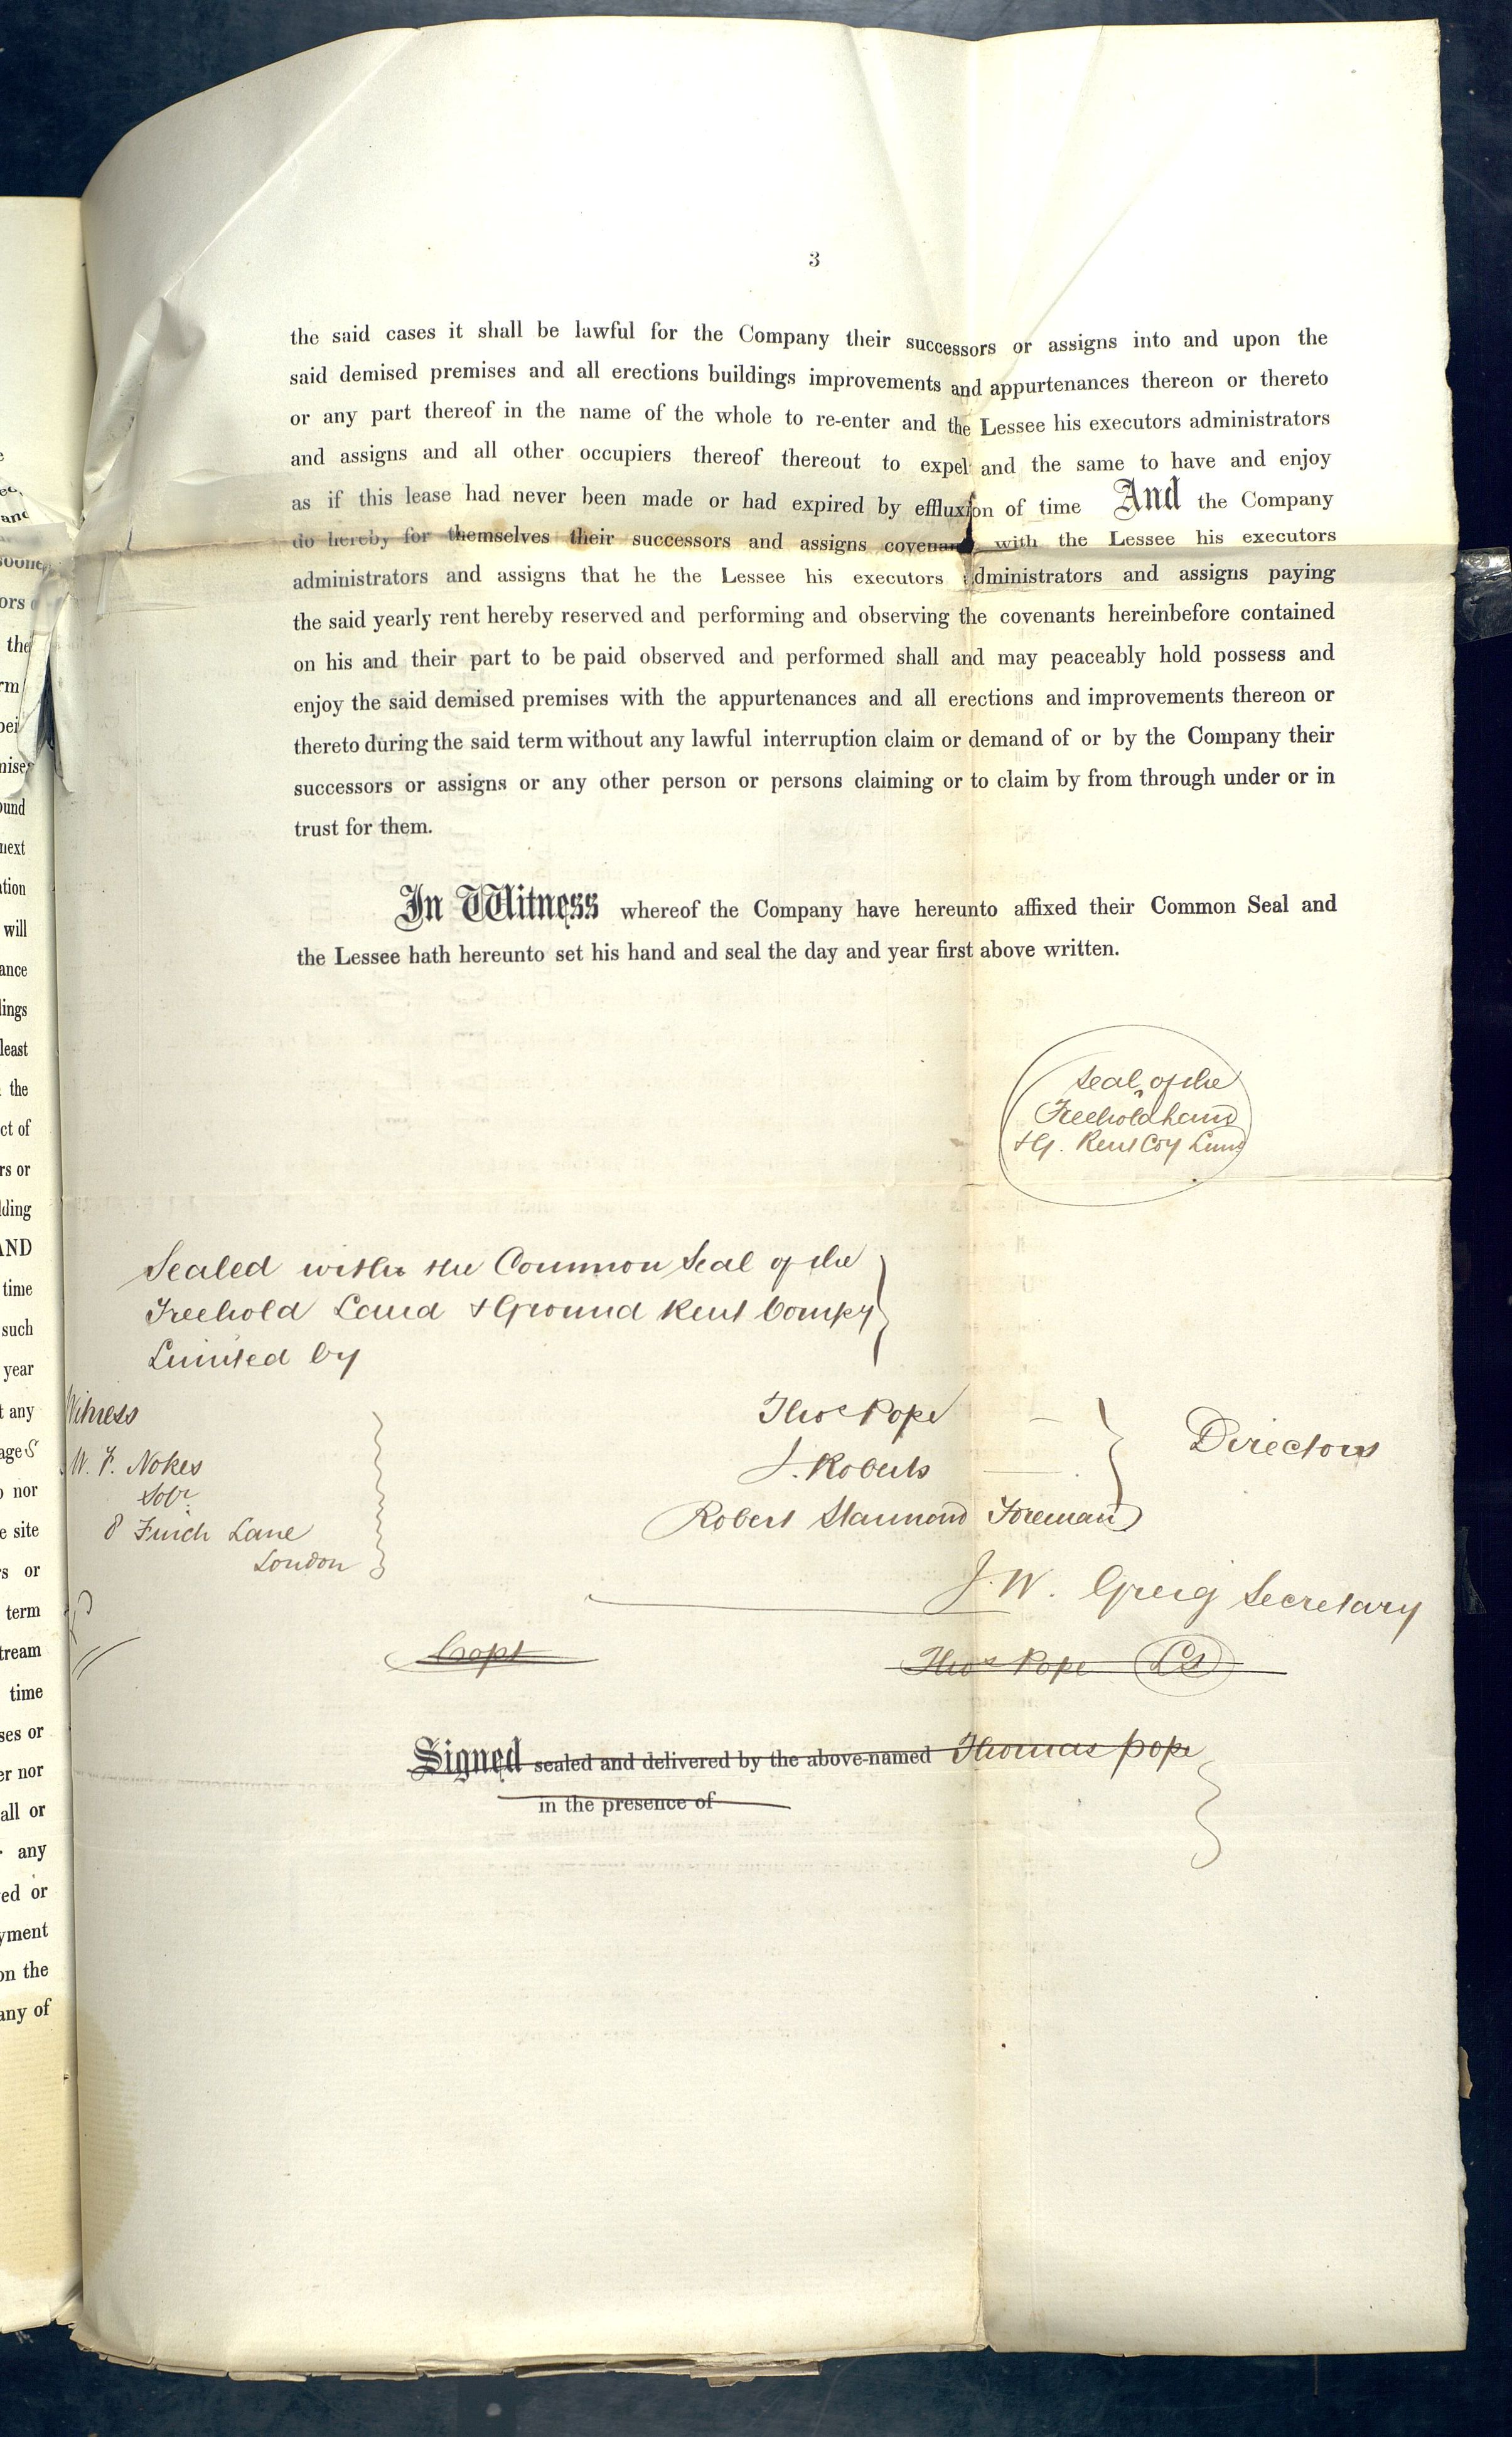 3
the said cases it shall be lawful for the Company their successors or assigns into and upon the
said demised premises and all erections buildings improvements and appurtenances thereon or thereto
or any part thereof in the name of the whole to re-enter and the Lessee his executors administrators
and assigns and all other occupiers thereof thereout to expel and the same to have and enjoy
as if this lease had never been made or had expired by effluxion of time And the Company
do hereby for themselves their successors and assigns covenant with the Lessee his executors
administrators and assigns that he the Lessee his executors administrators and assigns paying
the said yearly rent hereby reserved and performing and observing the covenants hereinbefore contained
on his and their part to be paid observed and performed shall and may peaceably hold possess and
enjoy the said demised premises with the appurtenances and all erections and improvements thereon or
thereto during the said term without any lawful interruption claim or demand of or by the Company their
successors or assigns or any other person or persons claiming or to claim by from through under or in
trust for them.
In Witness whereof the Company have hereunto affixed their Common Seal and
the Lessee hath hereunto set his hand and seal the day and year first above written.
Seal of the
Freehold Land
& G. Rent Coy Limd
Sealed with the Common Seal of the
Freehold Land & Ground Rent Compy
Limited by
Witness
W. F. Nokes
Solr
8 Finch Lane
London
Thos Pope
J. Roberts
Robert Stanmond Foreman
Directors
J. W. Greig Secretary
Copt
Thos Pope LS
Signed sealed and delivered by the above-named Thomas Pope
in the presence of
the
ound
next
ation
will
ance
dings
least
the
ct of
rs or
lding
AND
time
such
year
t any
nor
e site
s or
term
tream
time
ses or
er nor
all or
any
ed or
yment
on the
any of